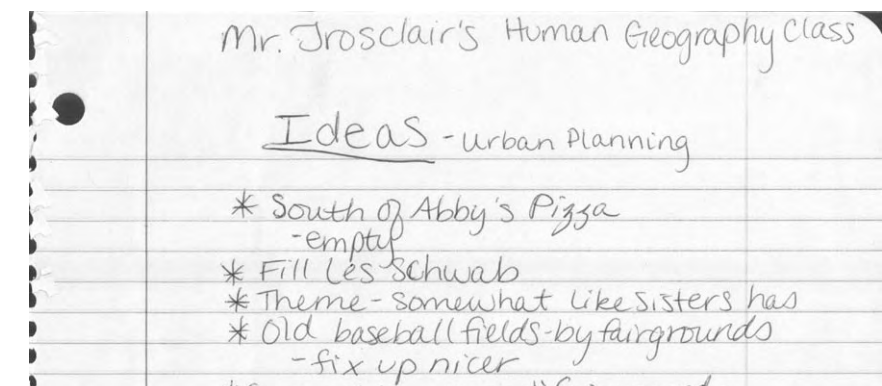 Mr. Trosclair's Human Geography Class
Ideas - Urban Planning
* South of Abby's Pizza
-empty
* Fill Les Schwab
* Theme - Somewhat Like Sisters has
* Old baseball fields - by fairgrounds
- fix up nicer